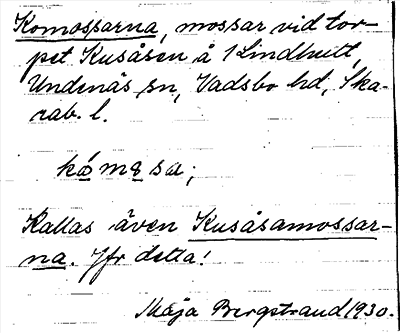 Komossarna, mossar vid tor-
pet Kusåsen å 1 Lindhult,
Undenäs sn, Vadsbo hd, Ska-
rab. l.
kómᴕsa;
Kallas även Kusåsamossar-
na. Jfr detta!
Maja Bergstrand 1930.